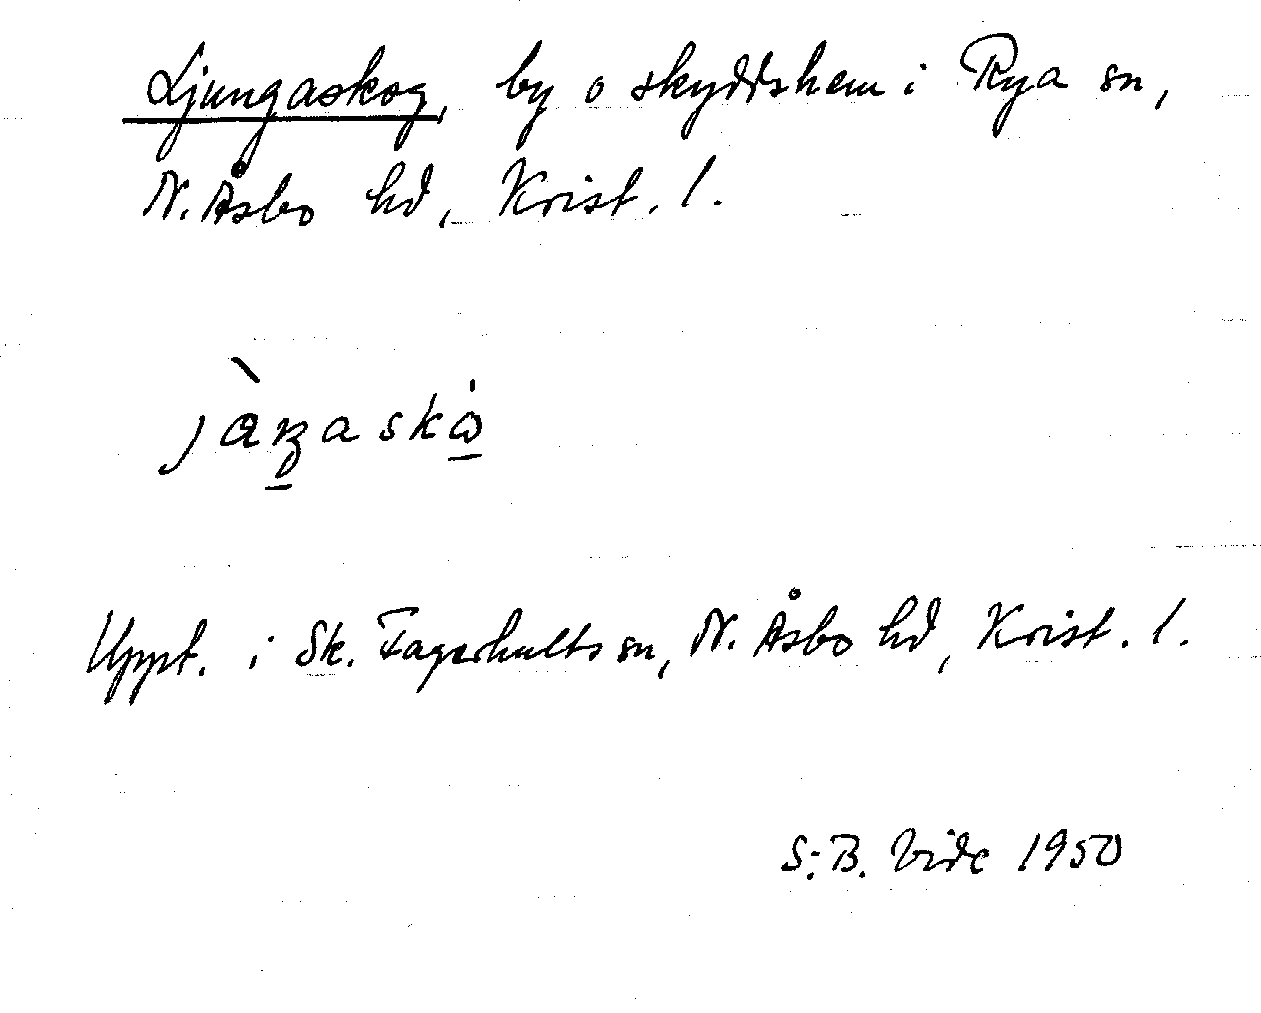 Ljungaskog, by o skyddshem i Rya sn,
N. Åsbo hd, Krist. l.
Uppt. i Sk. Fagerhults sn, N. Åsbo hd, Krist. l.
S:B. Vide 1950